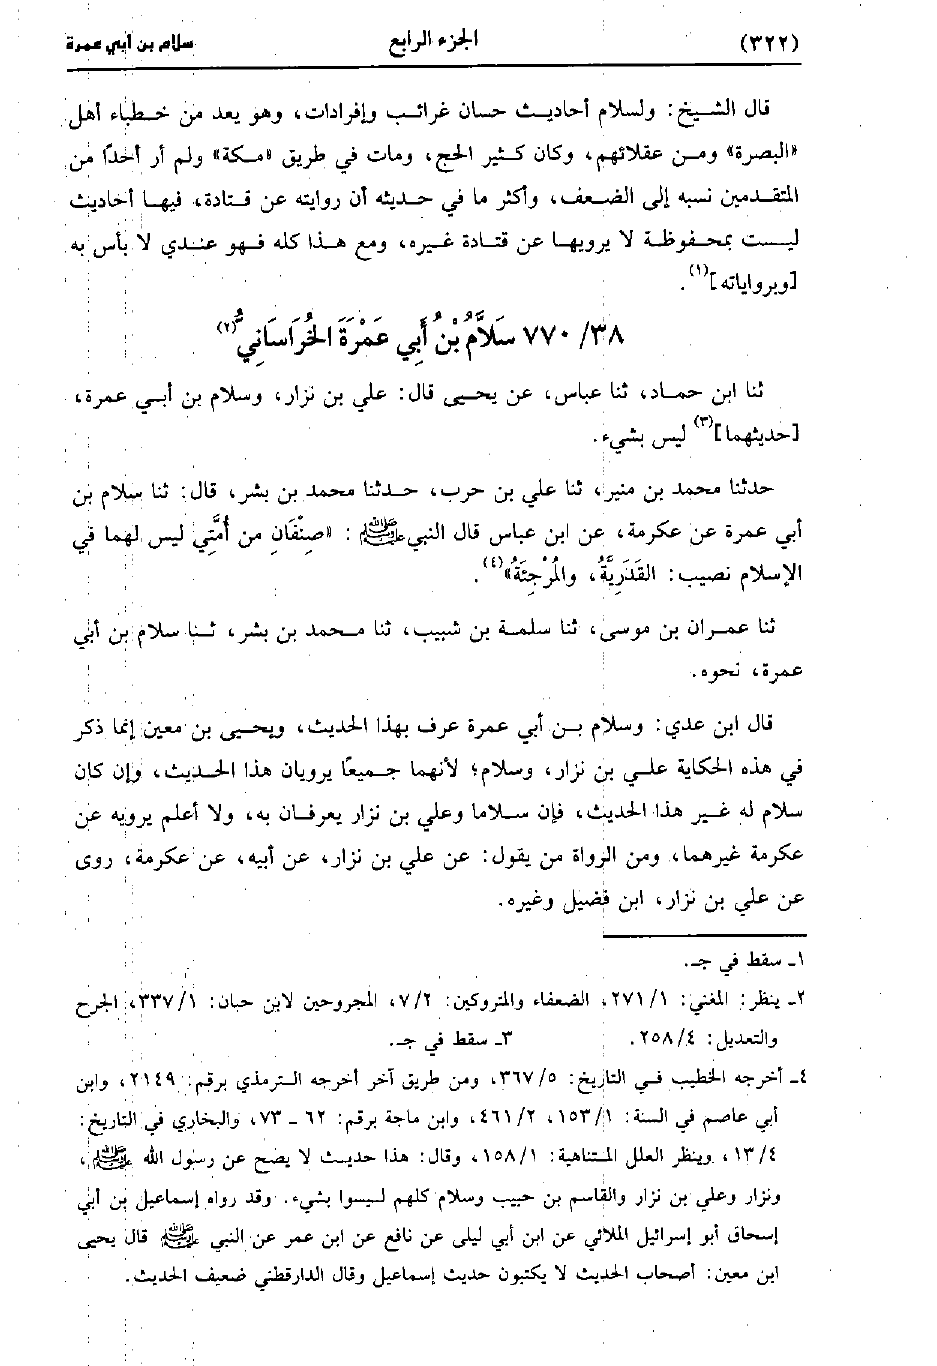 (٣٢٢) الجزء الرابع سلام بن أبي عمرة
قال الشيخ: ولسلام أحاديث حسان غرائب وإفرادات، وهو يعد من خطباء أهل
«البصرة» ومن عقلائهم، وكان كثير الحج، ومات في طريق «مكة» ولم أر أحدًا من
المتقدمين نسبه إلى الضعف، وأكثر ما في حديثه أن روايته عن قتادة، فيها أحاديث
ليست بمحفوظة لا يرويها عن قتادة غيره، ومع هذا كله فهو عندي لا بأس به
[وبرواياته](١).
٣٨/ ٧٧٠ سَلاَّمُ بْنُ أَبِي عَمْرَةَ الخُرَاسَانِيُّ(٢)
ثنا ابن حماد، ثنا عباس، عن يحيى قال: علي بن نزار، وسلام بن أبي عمرة،
[حديثهما](٣) ليس بشيء.
حدثنا محمد بن منير، ثنا علي بن حرب، حدثنا محمد بن بشر، قال: ثنا سلام بن
أبي عمرة عن عكرمة، عن ابن عباس قال النبي ﷺ : «صِنْفَانِ من أُمَّتِي ليس لهما في
الإسلام نصيب: القَدَرِيَّةُ، والمُرْجِئَةُ»(٤).
ثنا عمران بن موسى، ثنا سلمة بن شبيب، ثنا محمد بن بشر، ثنا سلام بن أبي
عمرة، نحوه.
قال ابن عدي: وسلام بن أبي عمرة عرف بهذا الحديث، ويحيى بن معين إنما ذكر
في هذه الحكاية علي بن نزار، وسلام؛ لأنهما جميعًا يرويان هذا الحديث، وإن كان
سلام له غير هذا الحديث، فإن سلاما وعلي بن نزار يعرفان به، ولا أعلم يرويه عن
عكرمة غيرهما، ومن الرواة من يقول: عن علي بن نزار، عن أبيه، عن عكرمة، روى
عن علي بن نزار، ابن فضيل وغيره.
١ـ سقط في جـ.
٢ـ ينظر: المغني: ٢٧١/١، الضعفاء والمتروكين: ٧/٢، المجروحين لابن حبان: ٣٣٧/١، الجرح
والتعديل: ٢٥٨/٤. ٣ـ سقط في جـ.
٤ـ أخرجه الخطيب في التاريخ: ٣٦٧/٥، ومن طريق آخر أخرجه الترمذي برقم: ٢١٤٩، وابن
أبي عاصم في السنة: ١٥٣/١، ٤٦١/٢، وابن ماجة برقم: ٦٢ ـ ٧٣، والبخاري في التاريخ:
١٣/٤، وينظر العلل المتناهية: ١٥٨/١، وقال: هذا حديث لا يصح عن رسول الله ﷺ،
ونزار وعلي بن نزار والقاسم بن حبيب وسلام كلهم ليسوا بشيء. وقد رواه إسماعيل بن أبي
إسحاق أبو إسرائيل الملائي عن ابن أبي ليلى عن نافع عن ابن عمر عن النبي ﷺ قال يحيى
ابن معين: أصحاب الحديث لا يكتبون حديث إسماعيل وقال الدارقطني ضعيف الحديث.